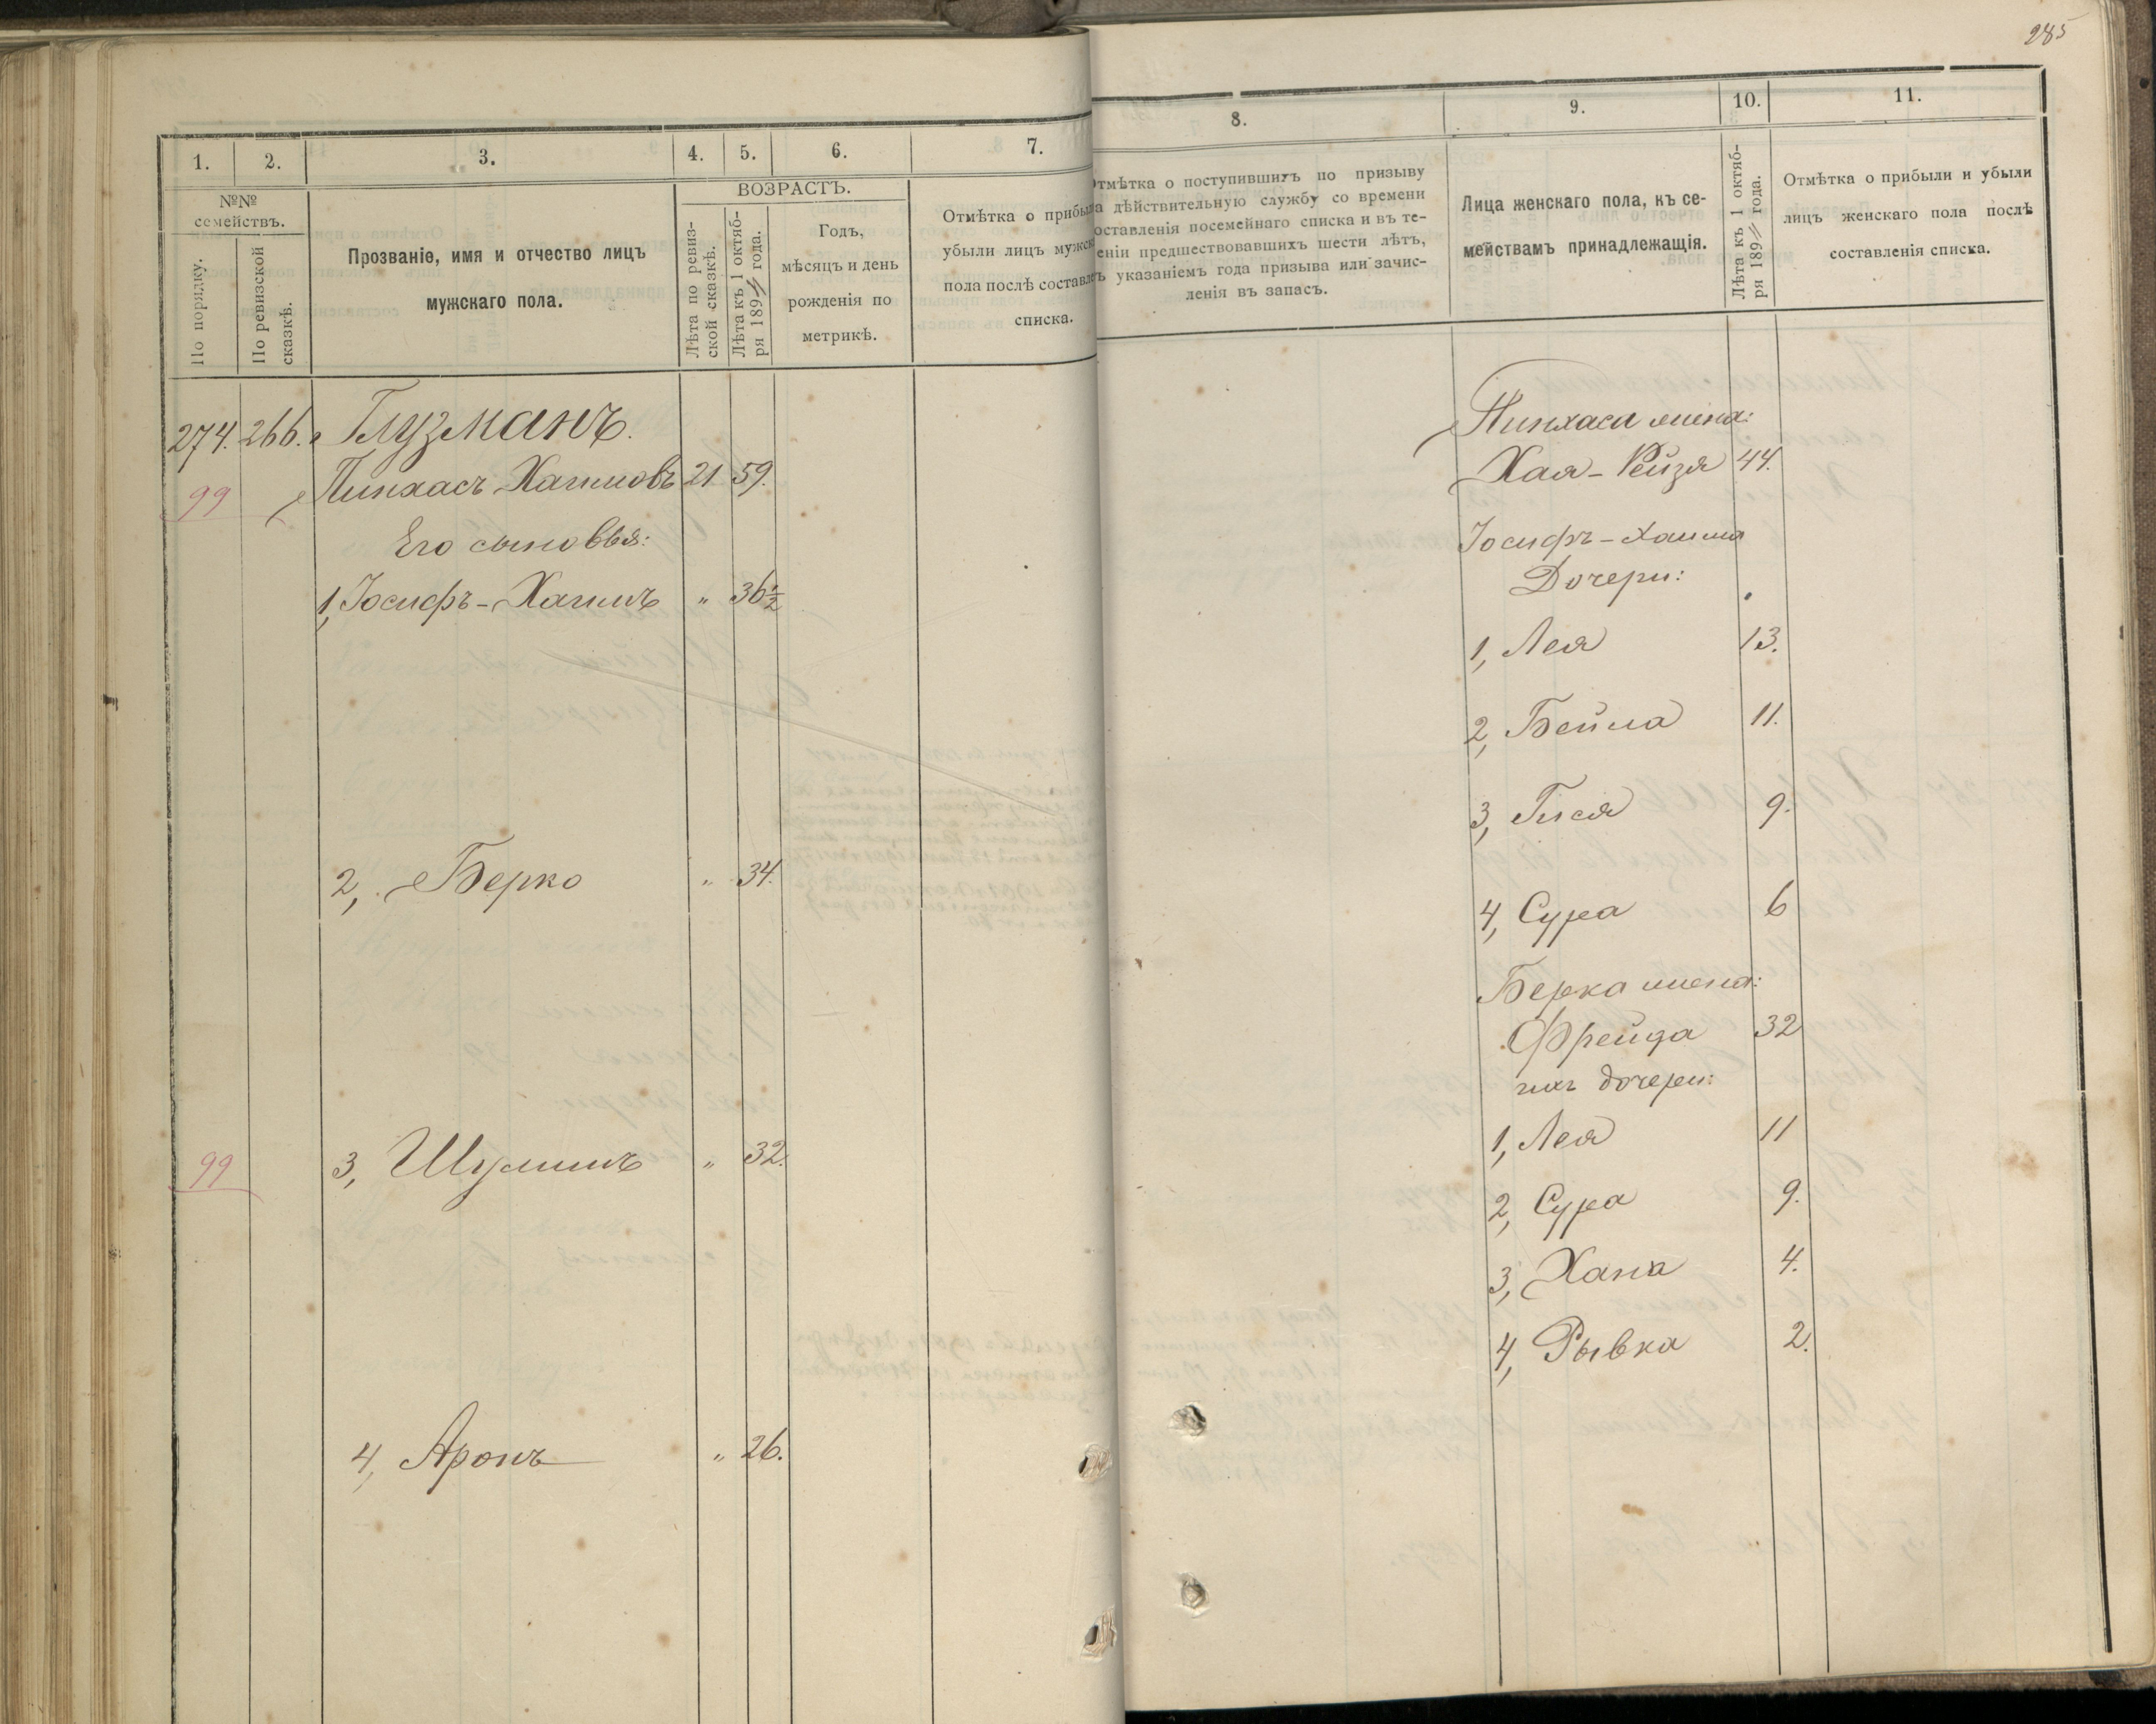 285
1.
2.
3.
4.
5.
6.
7.
8.
9.
10.
11.
№№
семействъ.
По порядку.
По ревизской
сказкѣ.
Прозваніе, имя и отчество лицъ
мужскаго пола.
ВОЗРАСТЪ.
Лѣта по ревиз-
ской сказкѣ.
Лѣта къ 1 октяб-
ря 189 года.
Годъ,
мѣсяцъ и день
рожденія по
метрикѣ.
Отмѣтка о прибы
убыли лицъ мужск
пола послѣ составле
списка.
Отмѣтка о поступившихъ по призыву
на дѣйствительную службу со времени
составленія посемейнаго списка и въ те-
еніи предшествовавшихъ шести лѣтъ,
съ указаніемъ года призыва или зачис-
ленія въ запасъ.
Лица женскаго пола, къ се-
мействамъ принадлежащія.
Лѣта къ 1 октяб-
ря 189 года.
Отмѣтка о прибыли и убыли
лицъ женскаго пола послѣ
составленія списка.
274. 266. Глузманъ.
99 Пинхасъ Хаимовъ 21 59.
Его сыновья:
1, Іосифъ-Хаимъ „ 36½
2, Берко „ 34.
99 3, Шулимъ „ 32.
4, Аронъ „ 26.
Пинхаса жена:
Хая-Рейзя 44.
Іосифъ-Хаима
Дочери:
1, Лея 13.
2, Бейла 11.
3, Гися 9.
4, Сура 6
Берка жена:
Фрейда 32
ихъ дочери:
1, Лея 11
2, Сура 9.
3, Хана 4.
4, Рывка 2.